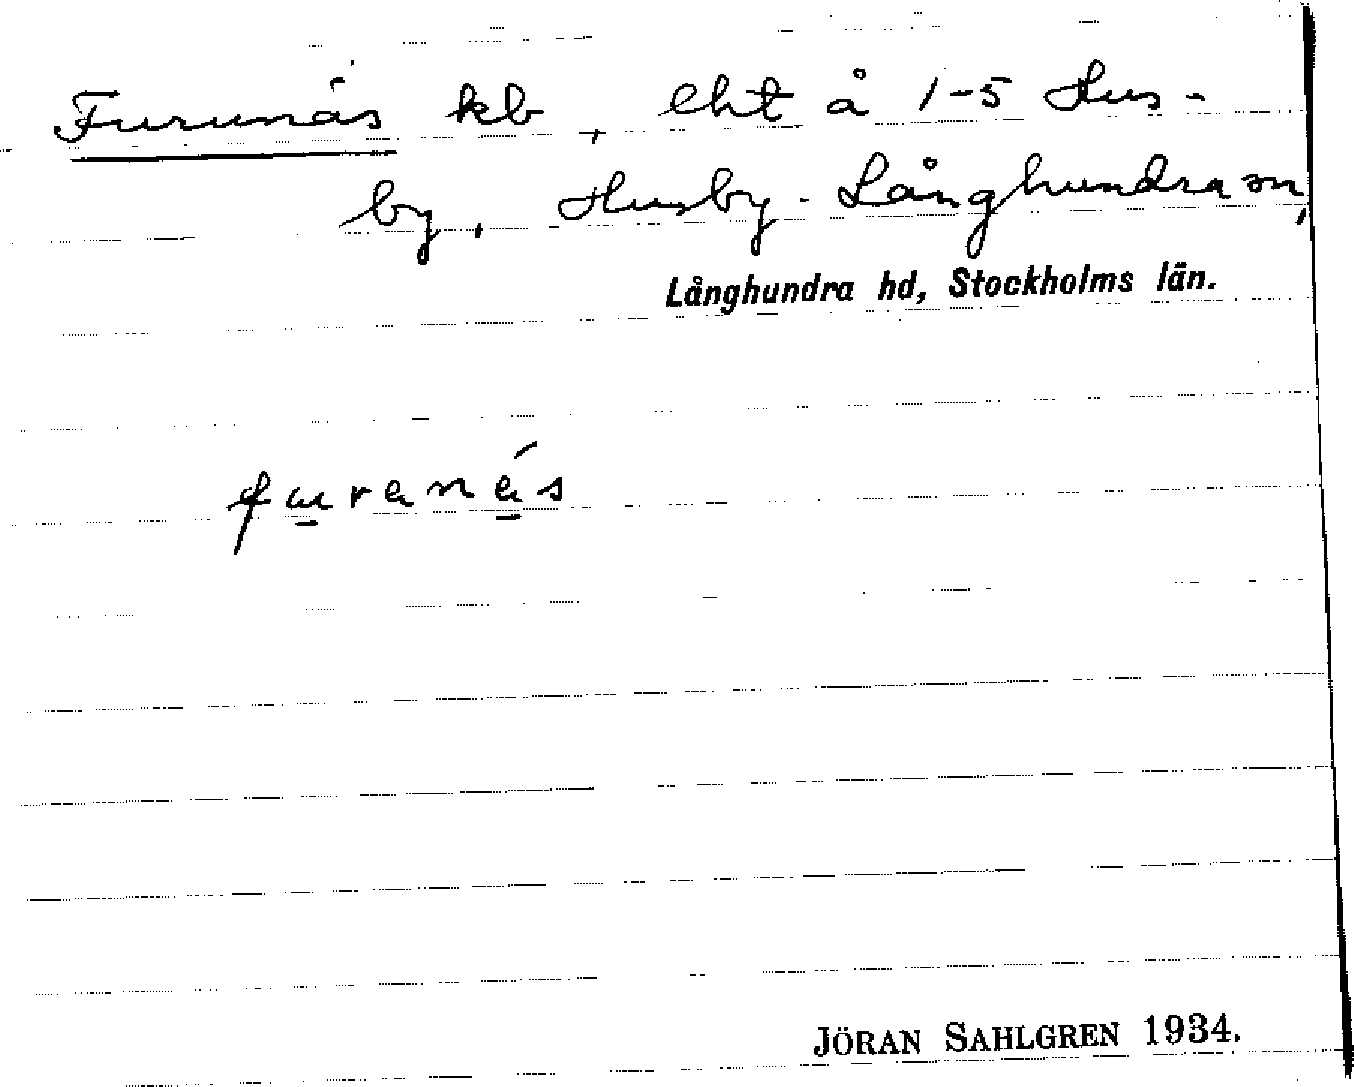 Furunäs kb, lht å 1-5 Hus-
by, Husby-Långhundra sn,
Långhundra hd, Stockholms län.
furanä́s
JÖRAN SAHLGREN 1934.